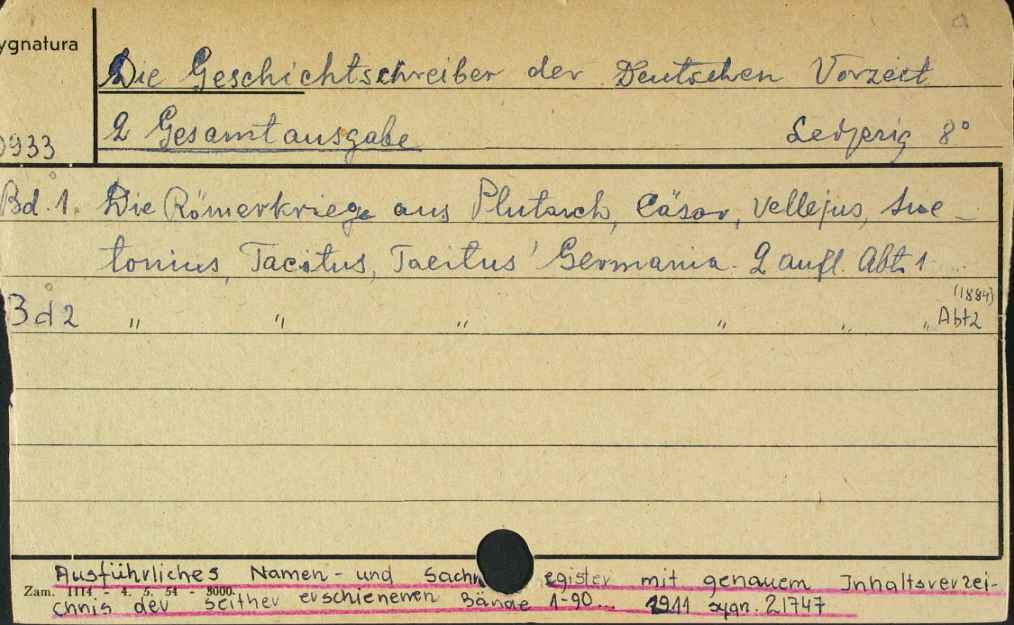 ygnatura
Die Geschichtschreiber der Deutschen Vorzeit
2 Gesamtausgabe Leipzig 8°
0933
Bd. 1. Die Römerkriege aus Plutarch, Cäsar, Vellejus, Sue-
tonius, Tacitus, Tacitus' Germania. 2 aufl. Abt. 1
(1884)
Bd 2 " " " " " " Abt 2
Ausführliches Namen- und Sachregister mit genauem Inhaltsverzei-
Zam. 1114 - 4. 5. 54 - 3000.
chnis der seither erschienenen Bände 1-90... 1911 sygn. 21747